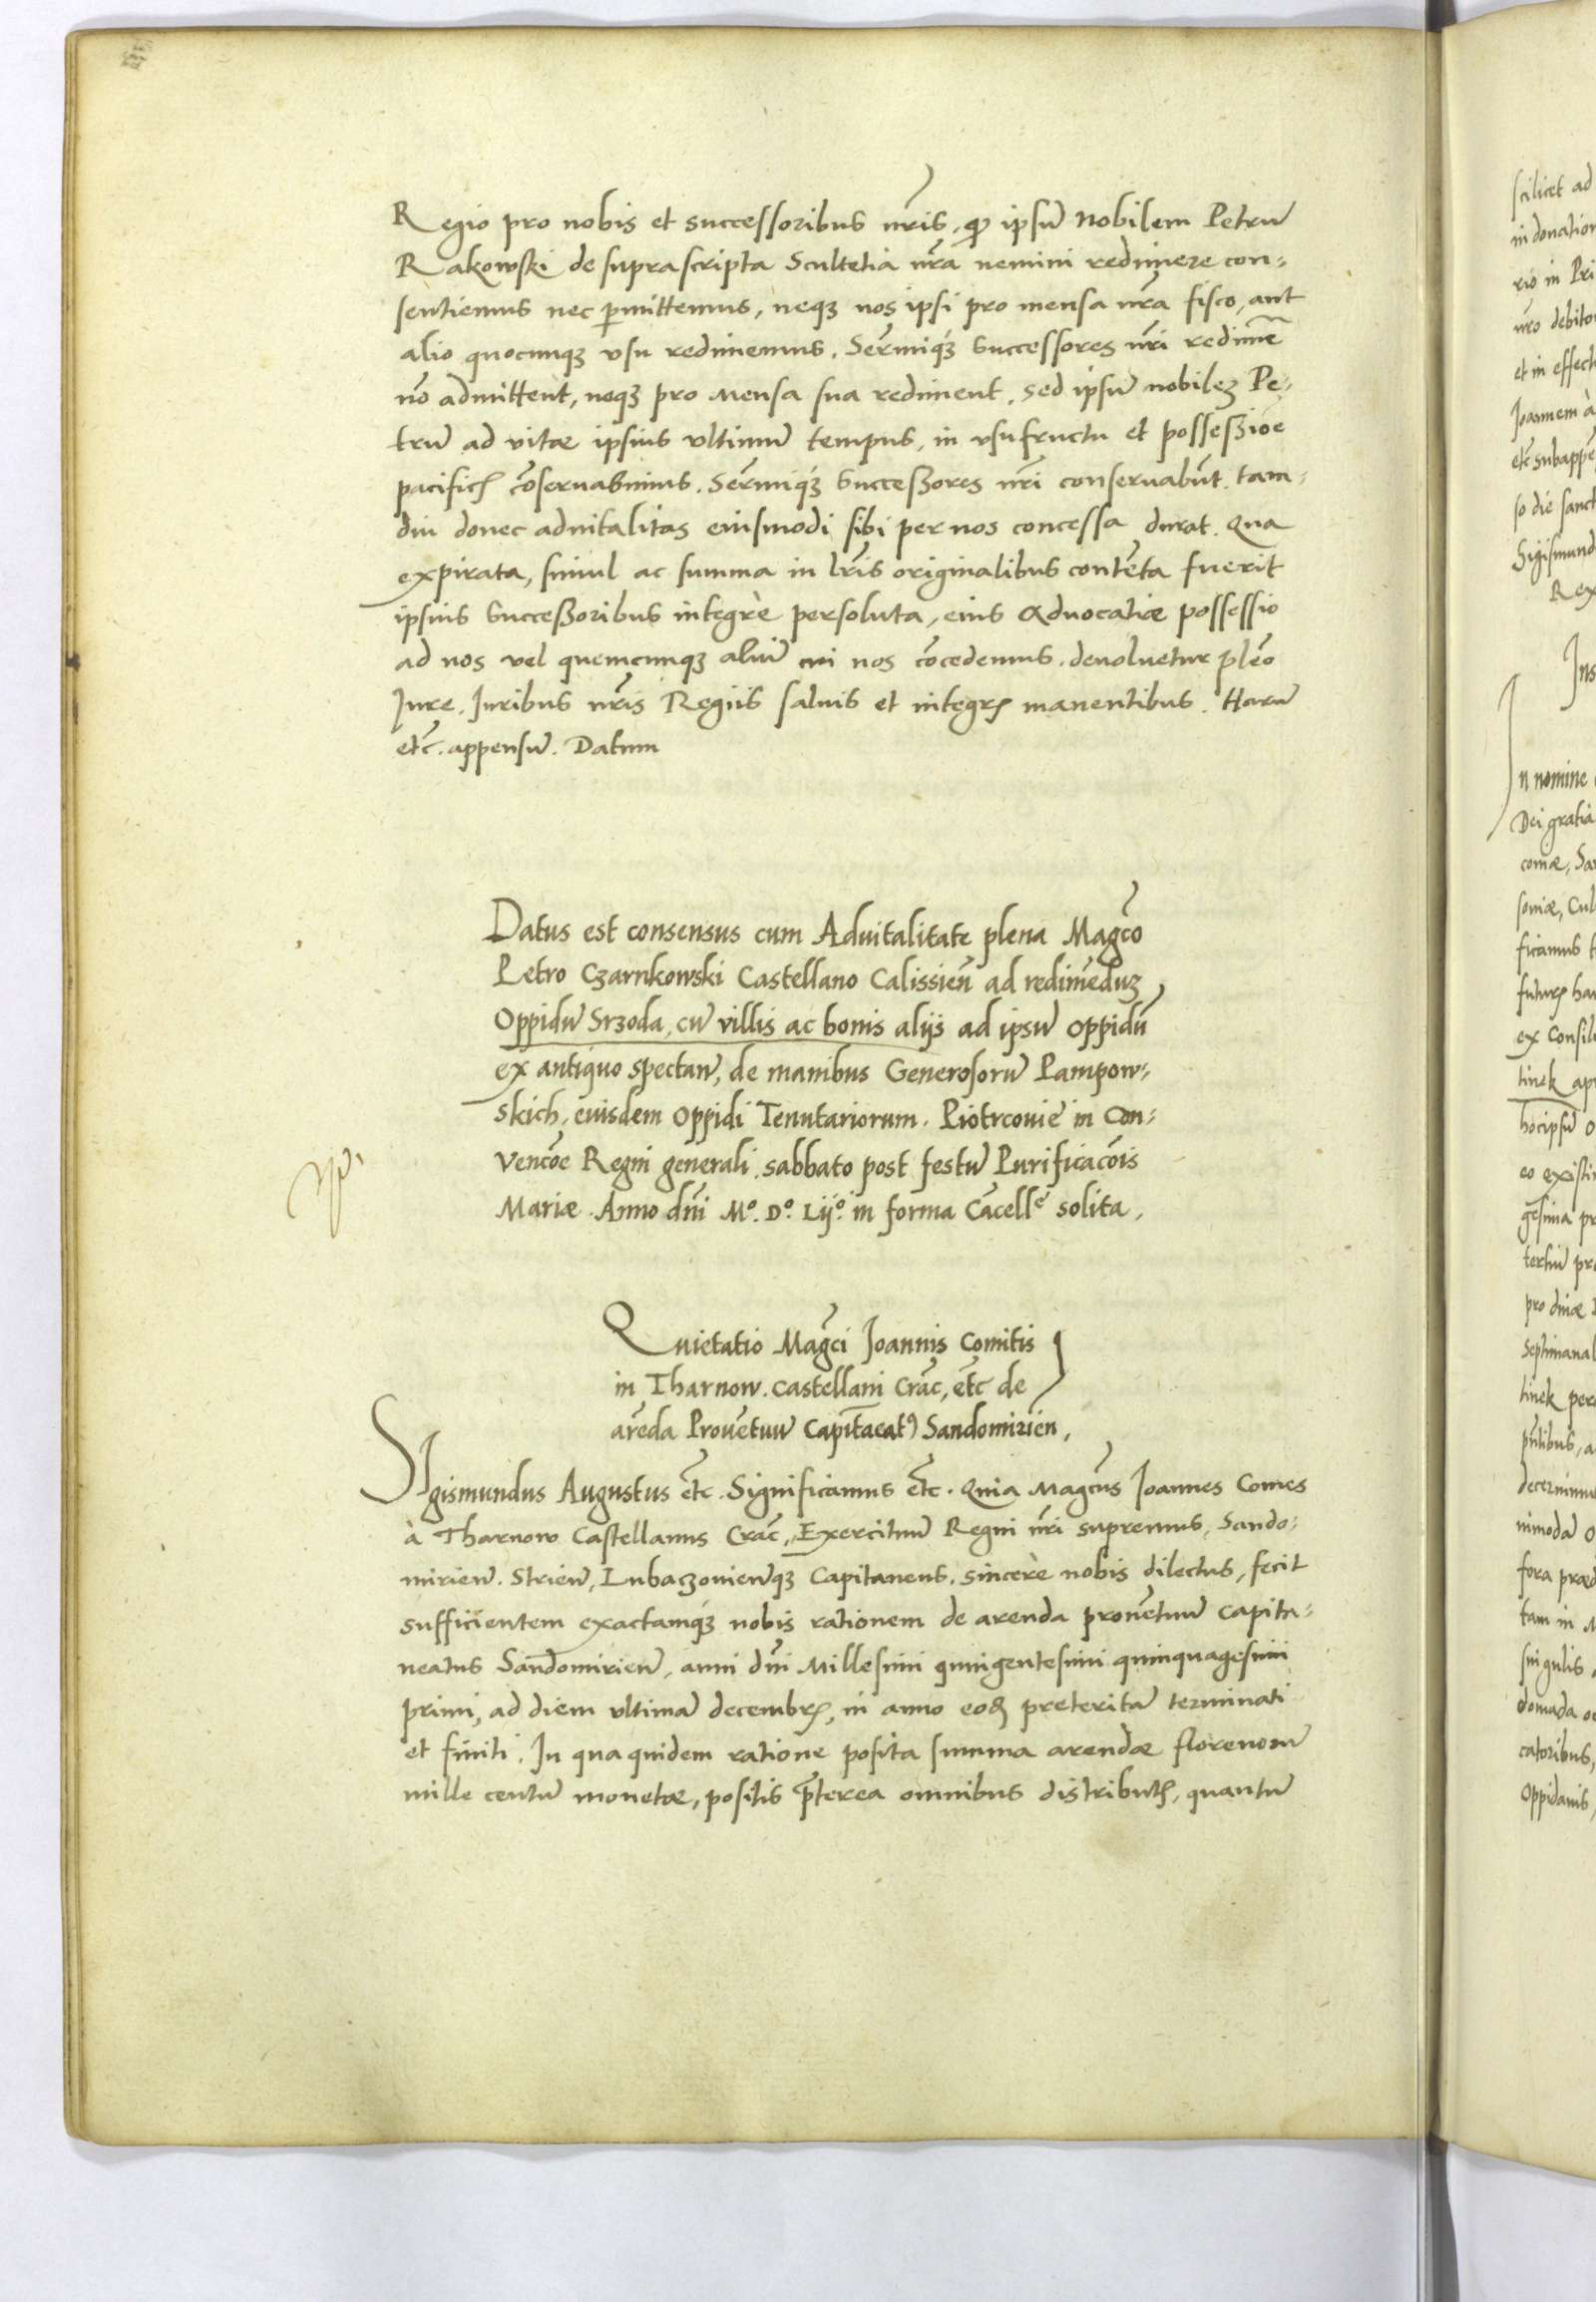 Regio pro nobis et successoribus nr̃is, ꝙ ipsũ nobilem Petrũ
Rakowski de suprascripta Scultetia nr̃a nemini redimere con-
sentiemus nec p̲mittemus, neqꝫ nos ipsi pro mensa nr̃a fisco, aut
alio quocunqꝫ vsu redimemus. Serm̃iqꝫ́ Successores nr̃i redime͂
nõ admittent, neqꝫ pro Mensa sua rediment, sed ipsũ nobileꝫ Pe-
trũ ad vitae ipsius vltimũ tempus, in vsufructu et possessioẽ
pacificꝭ cõseruabimus. Serm̃iqꝫ́ Successores nr̃i conseruabũt. tam-
diu donec aduitalitas eiusmodi sibi per nos concessa durat. Qua
expirata, simul ac summa in lr̃is originalibus contẽta fuerit
ipsius Successoribus integrè persoluta, eius Aduocatiae possessio
ad nos vel quemcunqꝫ aliũ cui nos cõcedemus. deuoluetur plẽo
Jure. Juribus nr̃is Regiis saluis et integrꝭ manentibus. Harũ
etc̃. appensũ. Datum
Datus est consensus cum Aduitalitate plena Magc̃o
Petro Czarnkowski Castellano Calissień ad redimẽduꝫ
Oppidũ Srzoda, cũ villis ac bonis alijs ad ipsũ oppidũ
ex antiquo spectan̄, de manibus Generosorũ Pampow-
skich, eiusdem Oppidi Tenutariorum. Piotrcouie in Con-
vencõe Regni generali. sabbato post festũ Purificacõis
Mariae. Anno dñi Mº. Dº. Lijº. in forma Cãcellᵉ solita.
Quietatio Magc̃i Joannis Comitis
in Tharnow. Castellani Crac̃, etc̃ de
arẽda Prouẽtuũ Capit̃aeatꝰ Sandomirień.
SIgismundus Augustus etc̃. Significamus etc̃. Quia Magc̃us Joannes Comes
à Tharnow Castellanus Crac̃, Exercituũ Regni nr̃i supremus, Sando-
mirien̄. Strien̄, Lubaczouien̄qꝫ Capitaneus. sincerè nobis dilectus, fecit
sufficientem exactamqꝫ́ nobis rationem de arenda prouẽtuũ capita-
neatus Sandomirien̄, anni dñi Millesimi quingentesimi quinquagesimi
primi, ad diem vltimã decembrꝭ, in anno eoꝝ preteritũ terminati
et finiti. In qua quidem ratione posita summa arendae florenorũ
mille centũ monetae, positis p̃terea omnibus distributꝭ, quantũ
scilicet ad
in donation
rio in Pri
et in effect
Joannem à
so die sanct
Sigismund
Rex
Jn nomine
Dei gratia
comae, Sa
soniae, Cul
ficamus
ex Consil
tinek
eo existi
gesima
tertiũ
Septimanal
tinek
fora praed
tam in
singulis
domada
catoribus,
Oppidanis,